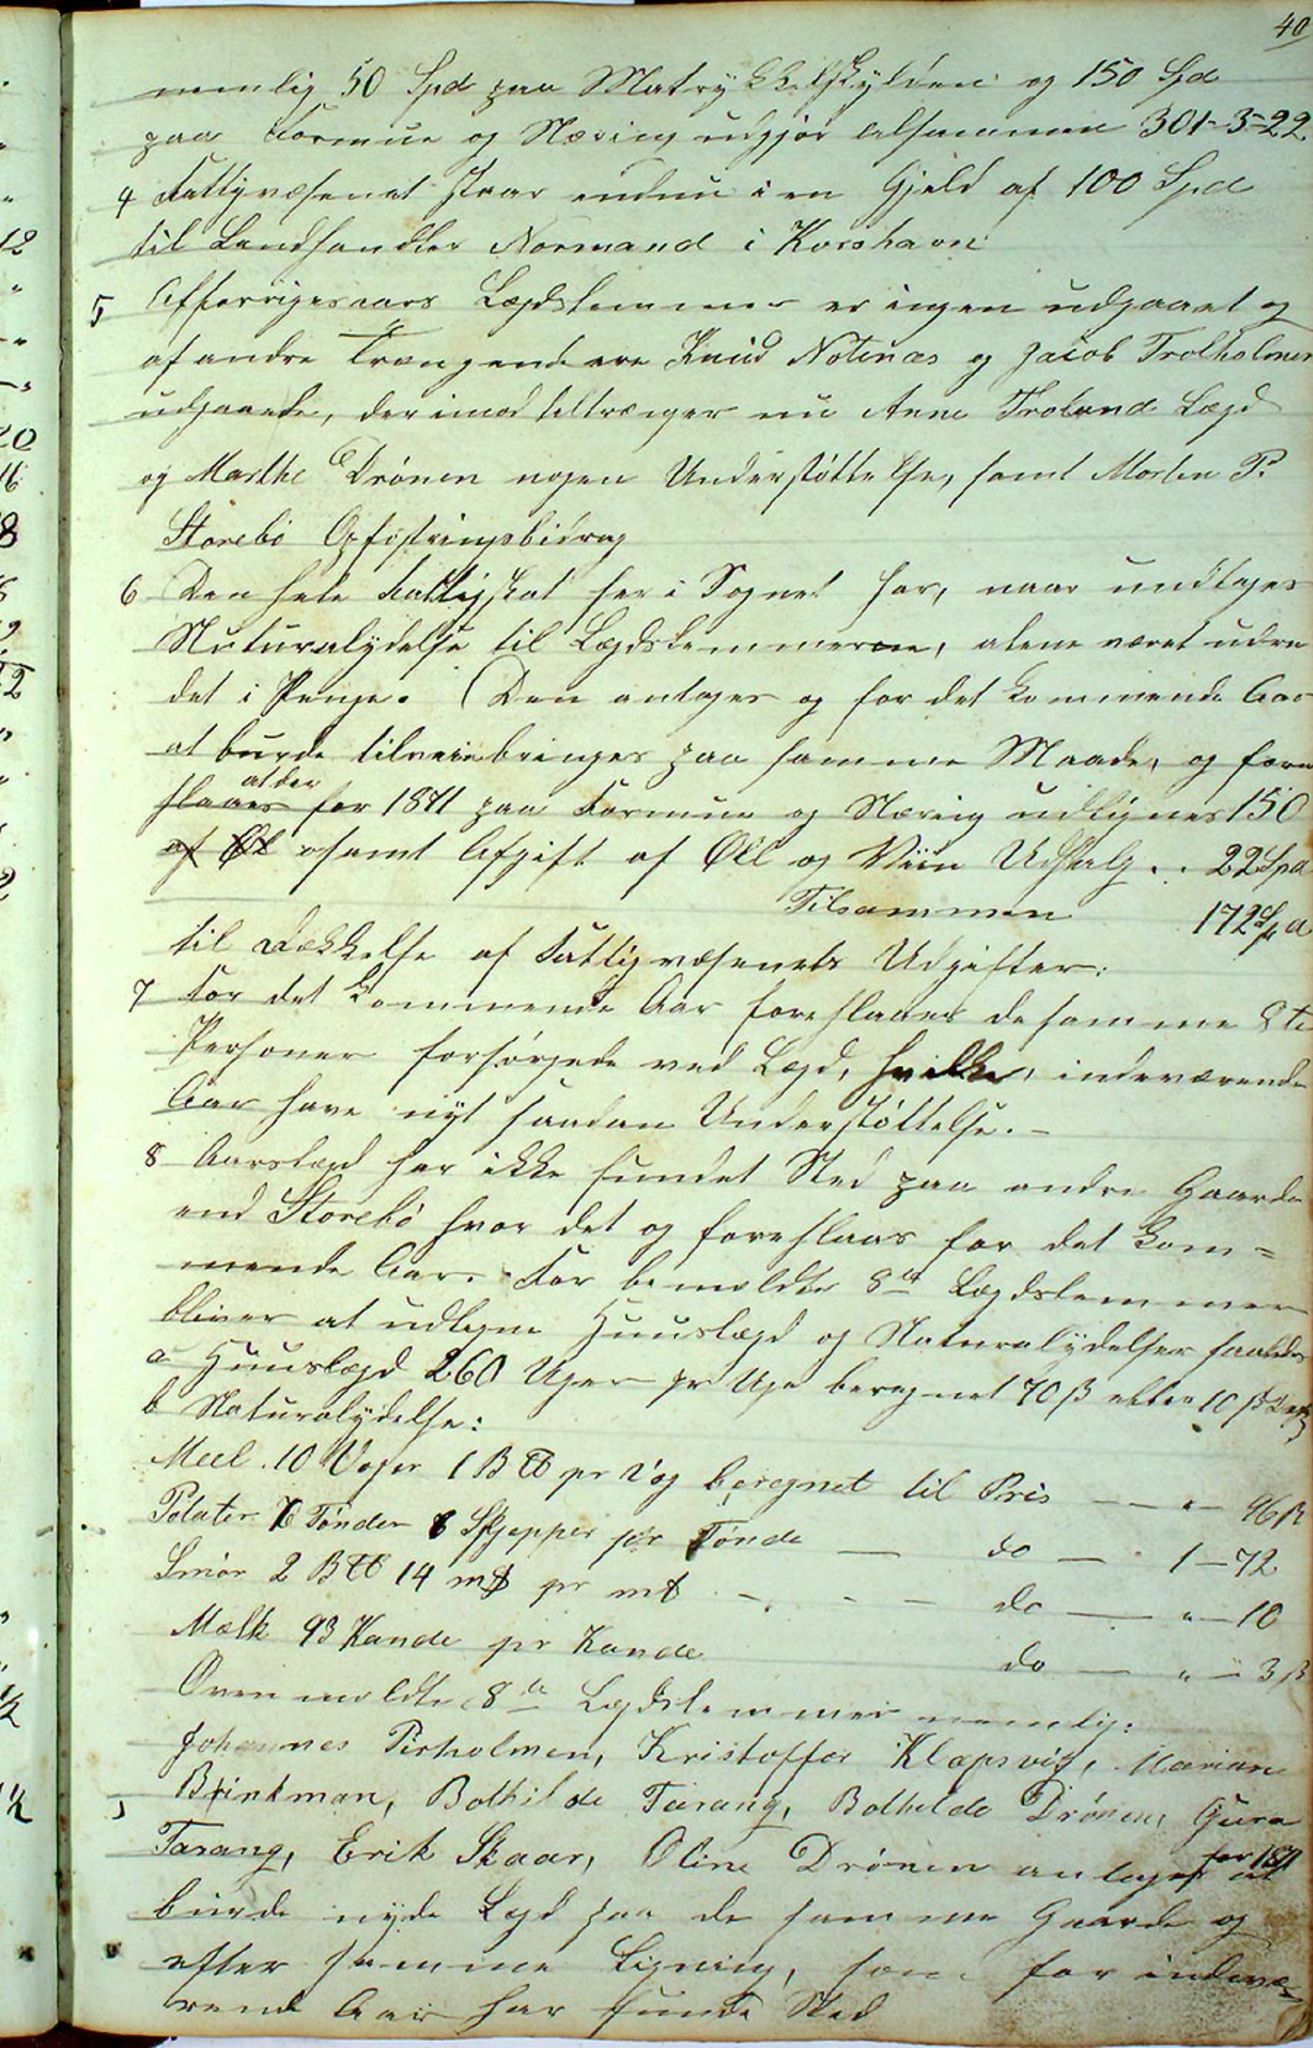 40
nemlig 50 Spd paa Matrykkelskylden og 150 Spd
paa Formue og Næring udgjør altsammen 301-3-22
4 Fattigvæsenet staar endnu i en Gjeld af 100 Spd
til Landhandler Normand i Korshavn
5 Af forrigesaars Lægdslemmer er ingen udgaaet og
af andre Trængende ere Knud Notenæs og Jacob Trolholmen
udgaaede, derimod tiltrænger nu Anne Troland Lægd
og Marthe Drönen nogen Understøttelse, samt Morten P.
Storebö Opfostringsbidrag
6 Den hele Fattigskat her i Sognet har, naar undtages
Naturalydelse til Lægdslemmerne, alene været udre
det i Penge. Den antages og for det kommende Aar
at burde tilveiebringes paa samme Maade, og fore
slaaes at der for 1871 paa Formue og Næring udlignes 150
af Øl samt Afgift af Øll og Viin Udsalg .. 22 Spd
Tilsammen 172 Spd
til Dækkelse af Fattigvæsenets Udgifter.
7 For det kommende Aar foreslaaes de samme 8te
Personer forsørgede ved Lægd, hvilke indeværende
Aar have nyt saadan Understøttelse. -
8 Aarslægd har ikke fundet Sted paa andre Gaarde
end Storebö hvor det og foreslaaes for det kom=
mende Aar. For bemeldte 8te Lægdslemmer
bliver at udlægne Huuslægd og Naturalydelser saaledes
a Huuslægd 260 Uger pr Uge beregnet 70 ß eller 10 ß
b Naturalydelse:
Meel 10 Voger 1 B℔ pr Vog beregnet til Pris — " — 96 ß
Poteter Tönder 6 Skjepper pr Tönde — do — 1 — 72
Smör 2 B℔ 14 m℔ pr m℔ - - - do — " — 10
Mælk 93 Kande pr Kande do — " — 3 ß
Oven meldte 8te Lægdslemmer nemlig:
Johannes Pirholmen, Kristoffer Klæpsvig, Mariane
Brinkman, Bothilde Tarang, Bothilde Drönen, Gura
Tarang, Erik Skaar, Oline Drönen antages for 1871 at
burde nyde Lægd paa de samme Gaarde og
efter samme Ligning, som for indevæ=
rende Aar har funde Sted